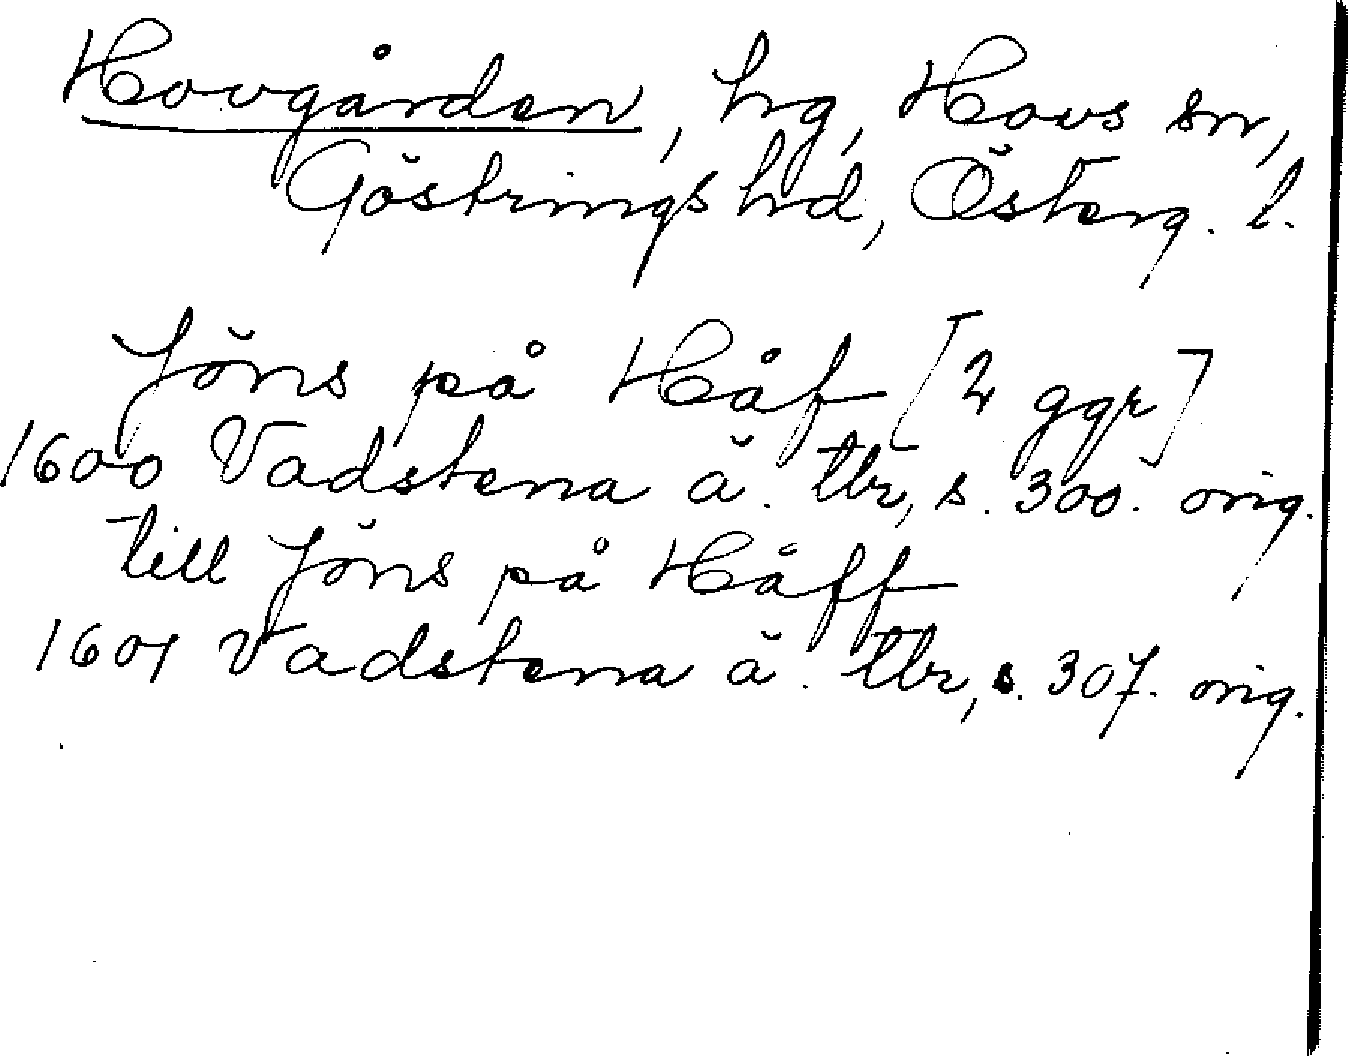 Hovgården, hg, Hovs sn,
Göstrings hd, Österg. l.
Jöns på Håf [2 ggr]
1600 Vadstena ä. tbr, s. 300. orig.
till Jöns på Håff
1601 Vadstena ä. tbr, s. 307. orig.